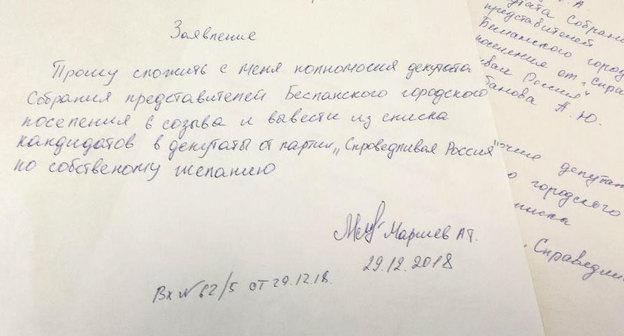 Заявление
Прошу сложить с меня полномочия депутата
Собрания представителей Бесланского городского
поселения 5 созыва и вывести из списка
кандидатов в депутаты от партии „Спроведливая Россия"
по собственому желанию
Маршев А.Ф.
29.12.2018
Вх № 62/5 от 29.12.18.
депутата Собрани
представителей
Бесланского город
поселение от „Спра
вая Россия"
банова А. Ю.
очие депутат
о городского
писка
Справедли